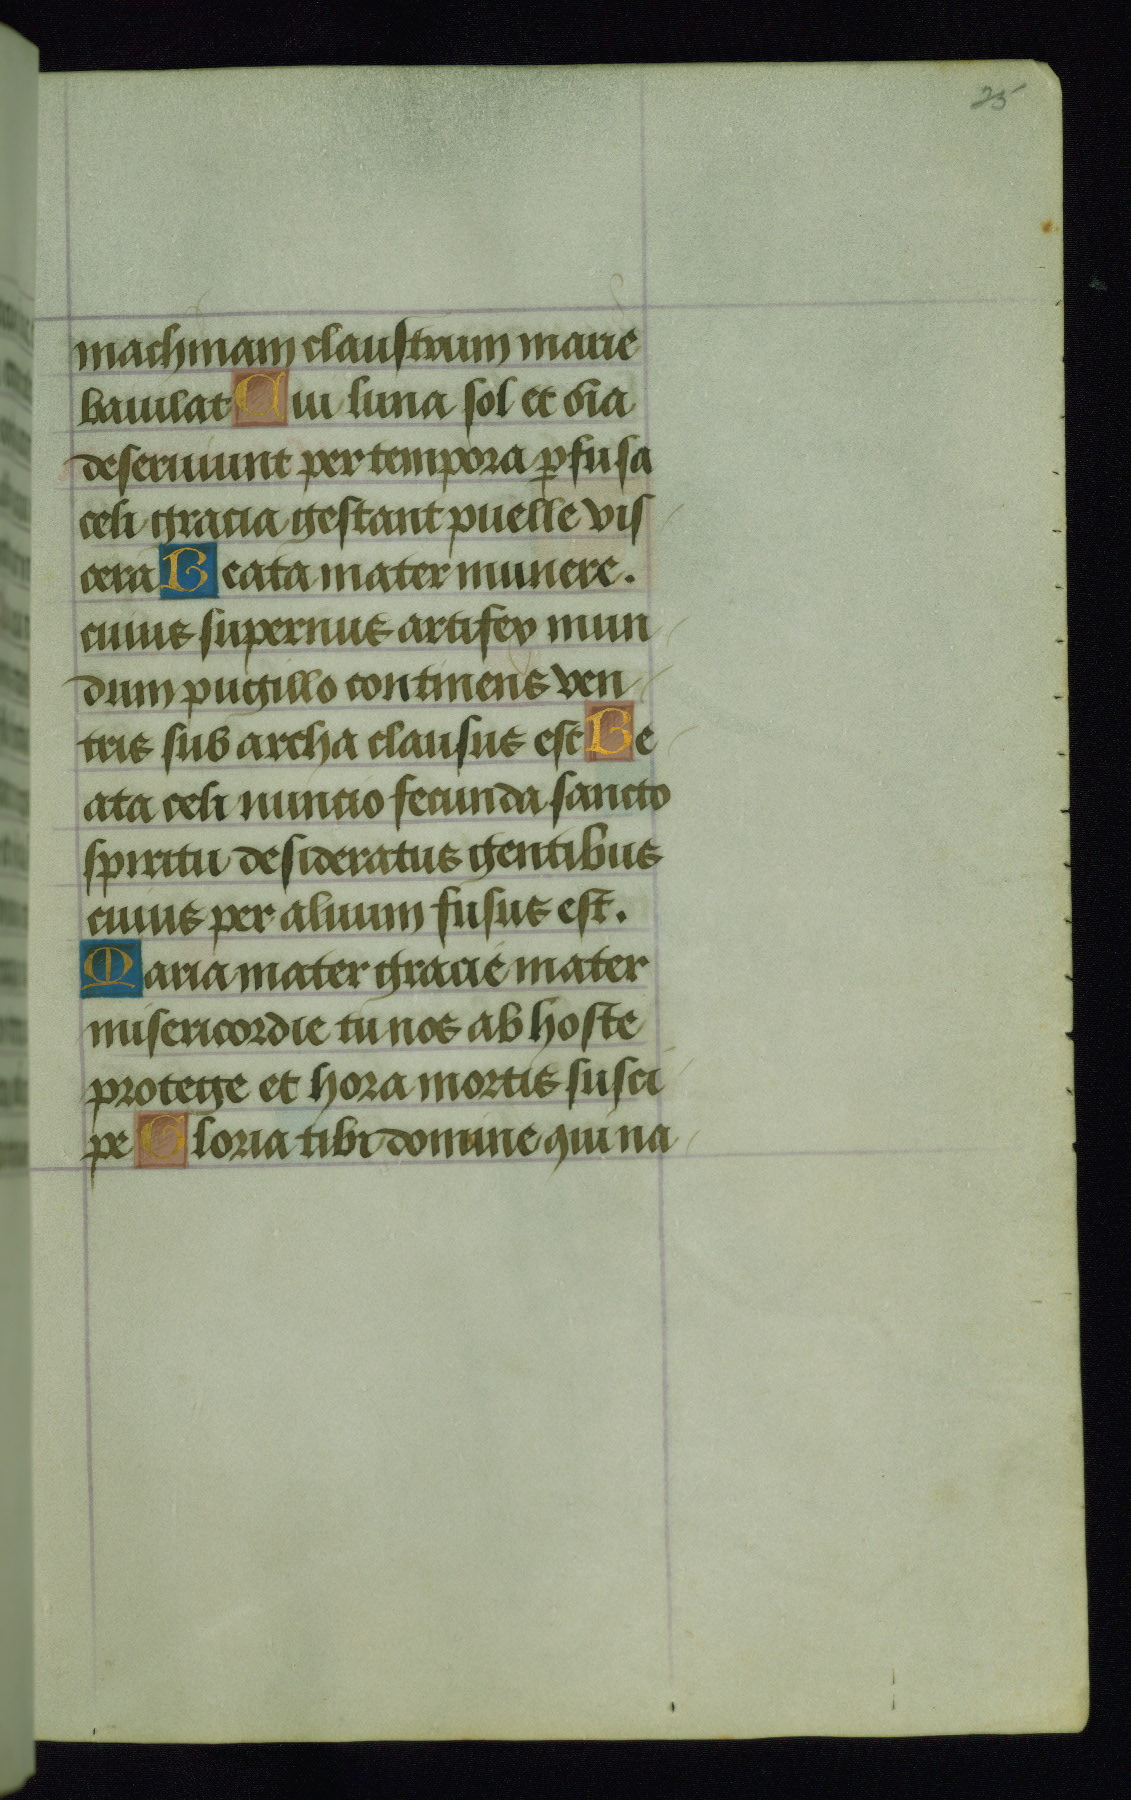 25
machinam claustrum marie
baiulat Cui luna sol et o͞ia
deseruiunt per tempora ꝑfusa
celi gracia gestant puelle vis
cera Beata mater munere.
cuius supernus artifex mun
dum pugillo continens ven
tris sub archa clausus est Be
ata celi nuncio fecunda sancto
spiritu desideratus gentibus
cuius per aluum fusus est.
Maria mater gracie mater
misericordie tu nos ab hoste
protege et hora mortis susci
pe Gloria tibi domine qui na